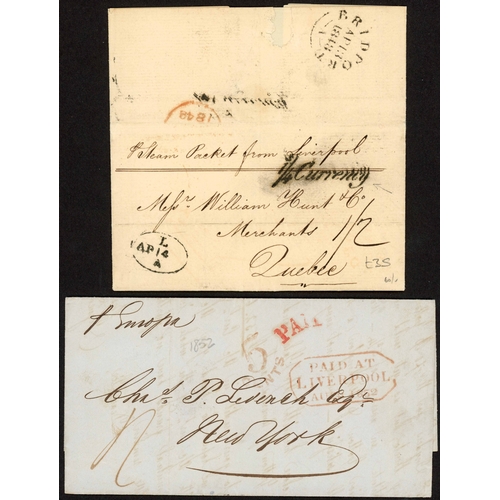 BRIDPORT
AP 13
1843
1843
p Steam Packet from Liverpool
1/4 Currency
Messrs William Hunt & Co
Merchants 1/2
Quebec
L
AP 14
A
£35
p Europa
1852
PAI
5
CENTS
PAID AT
LIVERPOOL
Chas P. Leverich Esqr
New York